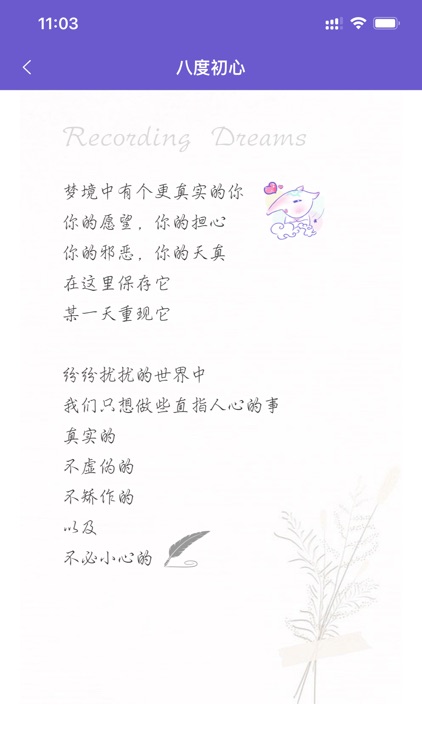 11:03
八度初心
Recording Dreams
梦境中有个更真实的你
你的愿望，你的担心
你的邪恶，你的天真
在这里保存它
某一天重现它
纷纷扰扰的世界中
我们只想做些直指人心的事
真实的
不虚伪的
不矫作的
以及
不必小心的